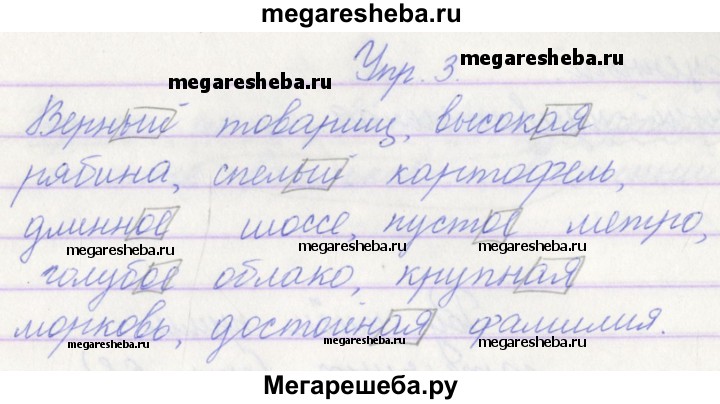 megaresheba.ru
Упр. 3. megaresheba.ru
megaresheba.ru
Верный товарищ, высокая
рябина, спелый картофель,
длинное шоссе, пустое метро,
megaresheba.ru megaresheba.ru megaresheba.ru
голубое облако, крупная
морковь, достойная фамилия.
megaresheba.ru megaresheba.ru megaresheba.ru
Мегарешеба.ру